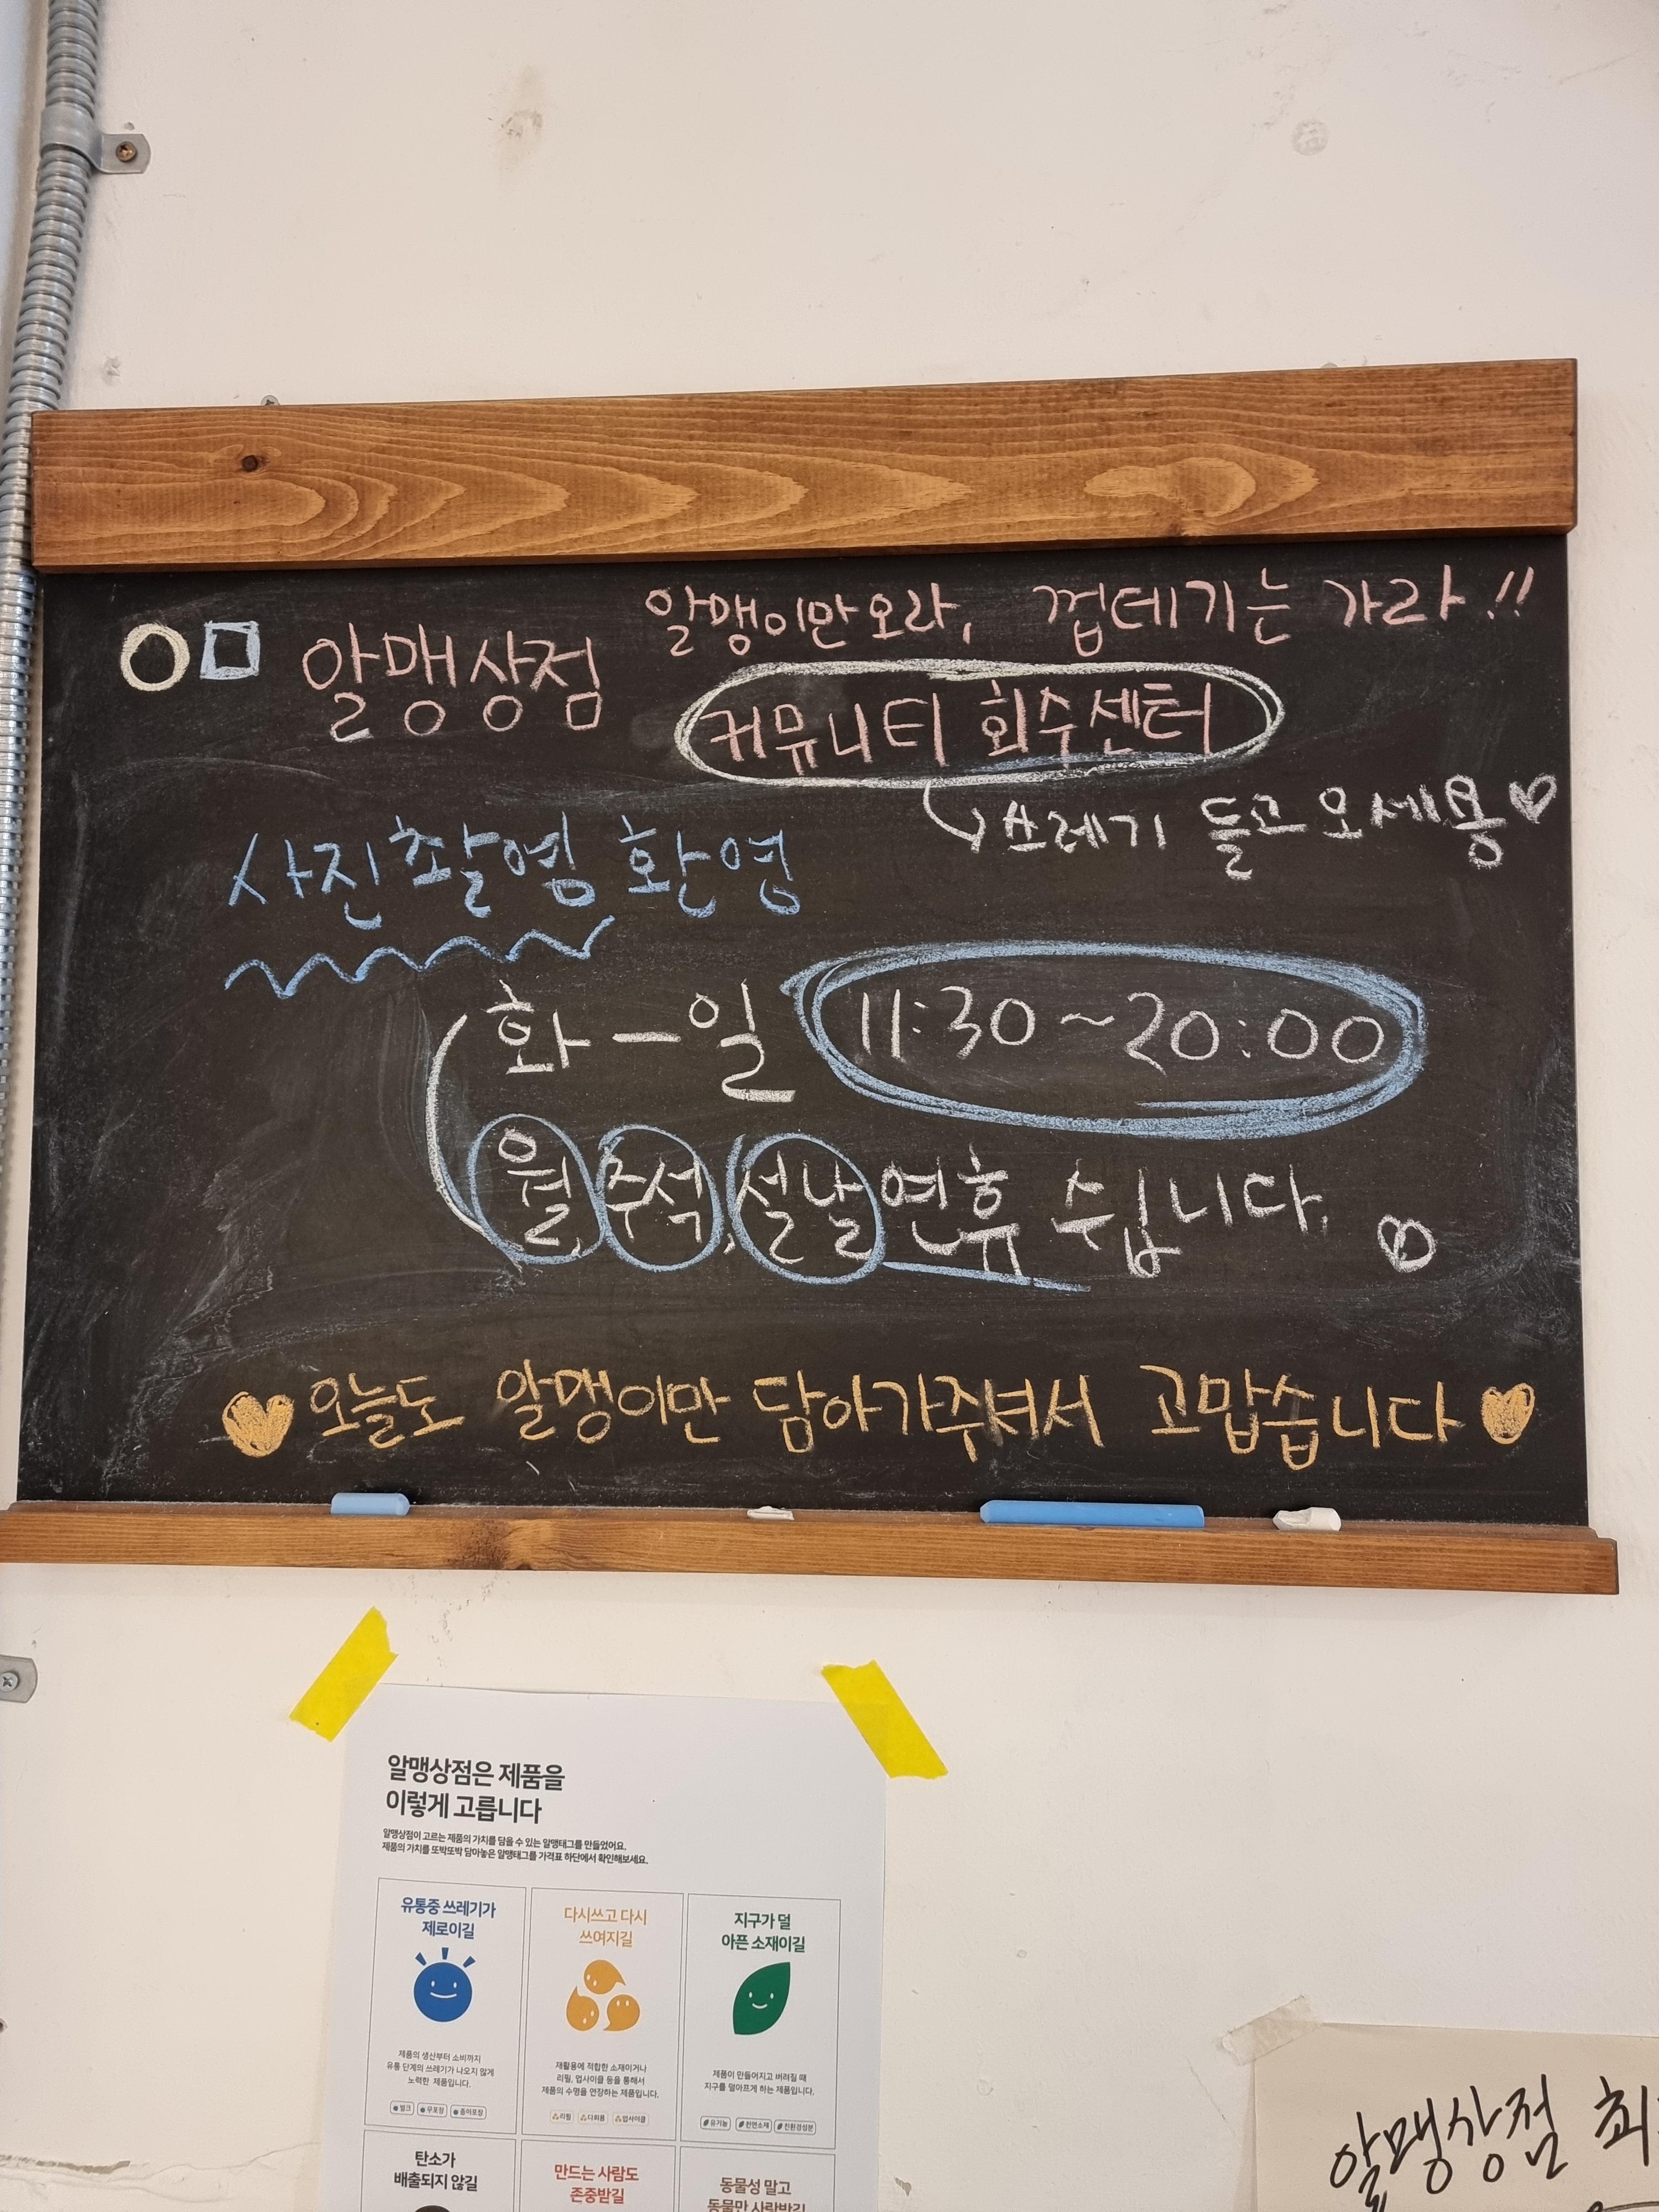 알맹상점
알맹이만 오라, 껍데기는 가라!!
커뮤니티 회수센터
쓰레기 들고 오세용♡
사진촬영 환영
화-일 11:30~20:00
월, 추석, 설날 연휴 쉽니다.
오늘도 알맹이만 담아가주셔서 고맙습니다
알맹상점은 제품을
이렇게 고릅니다
알맹상점이 고르는 제품의 가치를 담을 수 있는 알맹태그를 만들었어요.
제품의 가치를 또박또박 담아놓은 알맹태그를 가격표 하단에서 확인해보세요.
유통중 쓰레기가
제로이길
제품의 생산부터 소비까지
유통 단계의 쓰레기가 나오지 않게
노력한 제품입니다.
벌크 무포장 종이포장
다시쓰고 다시
쓰여지길
재활용에 적합한 소재이거나
리필, 업사이클 등을 통해서
제품의 수명을 연장하는 제품입니다.
리필 다회용 업사이클
지구가 덜
아픈 소재이길
제품이 만들어지고 버려질 때
지구를 덜아프게 하는 제품입니다.
유기농 천연소재 친환경성분
탄소가
배출되지 않길
만드는 사람도
존중받길
동물성 말고
동물만 사랑받길
알맹상점